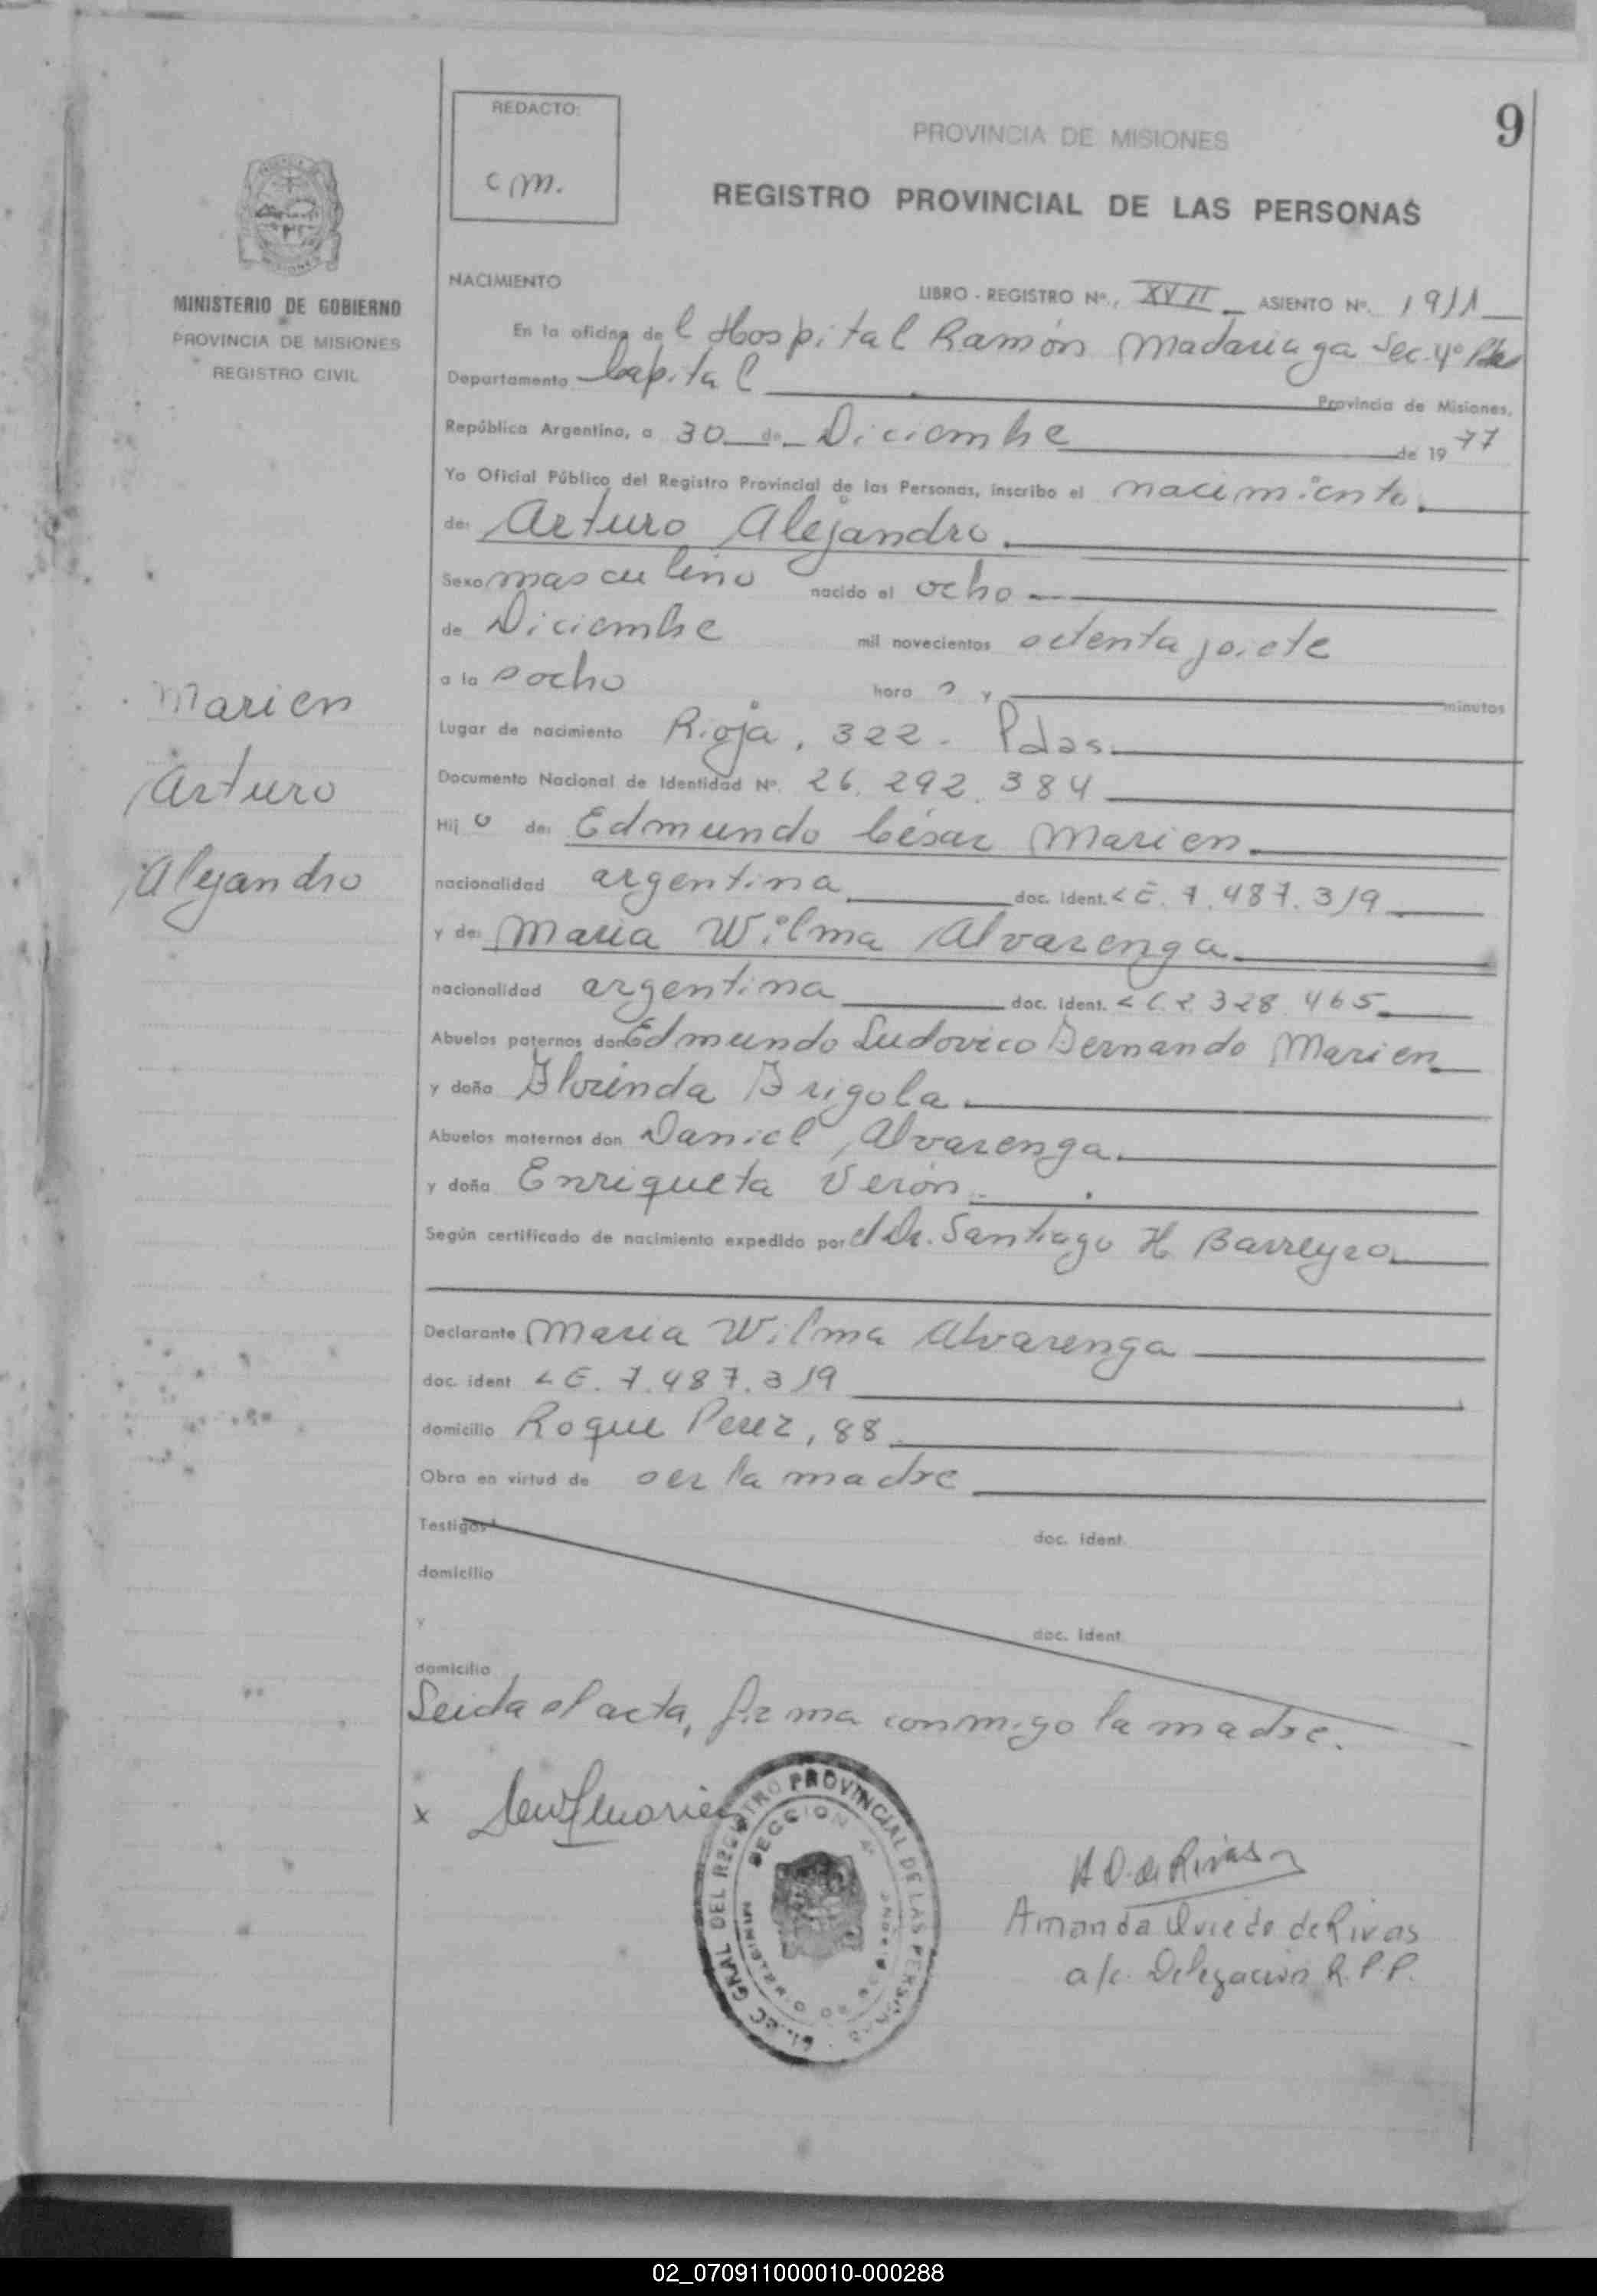 9
REDACTO:
C M.
PROVINCIA DE MISIONES
REGISTRO PROVINCIAL DE LAS PERSONAS
MINISTERIO DE GOBIERNO
PROVINCIA DE MISIONES
REGISTRO CIVIL
NACIMIENTO
LIBRO - REGISTRO Nº., XVII ASIENTO Nº. 1911
En la oficina de l Hospital Ramón Madariaga Sec. 4º Pdas
Departamento Capital Provincia de Misiones,
República Argentina, a 30 de Diciembre de 1977
Yo Oficial Público del Registro Provincial de las Personas, inscribo el nacimiento.
de: Arturo Alejandro.
Sexo masculino nacido el ocho
de Diciembre mil novecientos setenta y siete
a la s ocho hora s y minutos
Lugar de nacimiento Rioja, 322 - Pdas.
Documento Nacional de Identidad Nº. 26.292.384
Hij o de: Edmundo César Marien.
nacionalidad argentina doc. ident. L E. 7.487.319
y de: Maria Wilma Alvarenga.
nacionalidad argentina doc. ident. L C. 2.328.465
Abuelos paternos don Edmundo Ludovico Fernando Marien
y doña Florinda Frigola.
Abuelos maternos don Daniel Alvarenga.
y doña Enriqueta Verón.
Según certificado de nacimiento expedido por el Dr. Santiago H Barreyro
Declarante Maria Wilma Alvarenga
doc. ident L E. 7.487.319
domicilio Roque Perez, 88
Obra en virtud de ser la madre
Testigos doc. ident.
domicilio
y doc. ident.
domicilio
Leida el acta, firma conmigo la madre.
Marien
Arturo
Alejandro
x
GRAL DEL REGISTRO PROVINCIAL DE LAS PERSONAS
SECCION 4º
A O. de Rivas
Amanda Oviedo de Rivas
a/c. Delegación R.P.P.
02_070911000010-000288